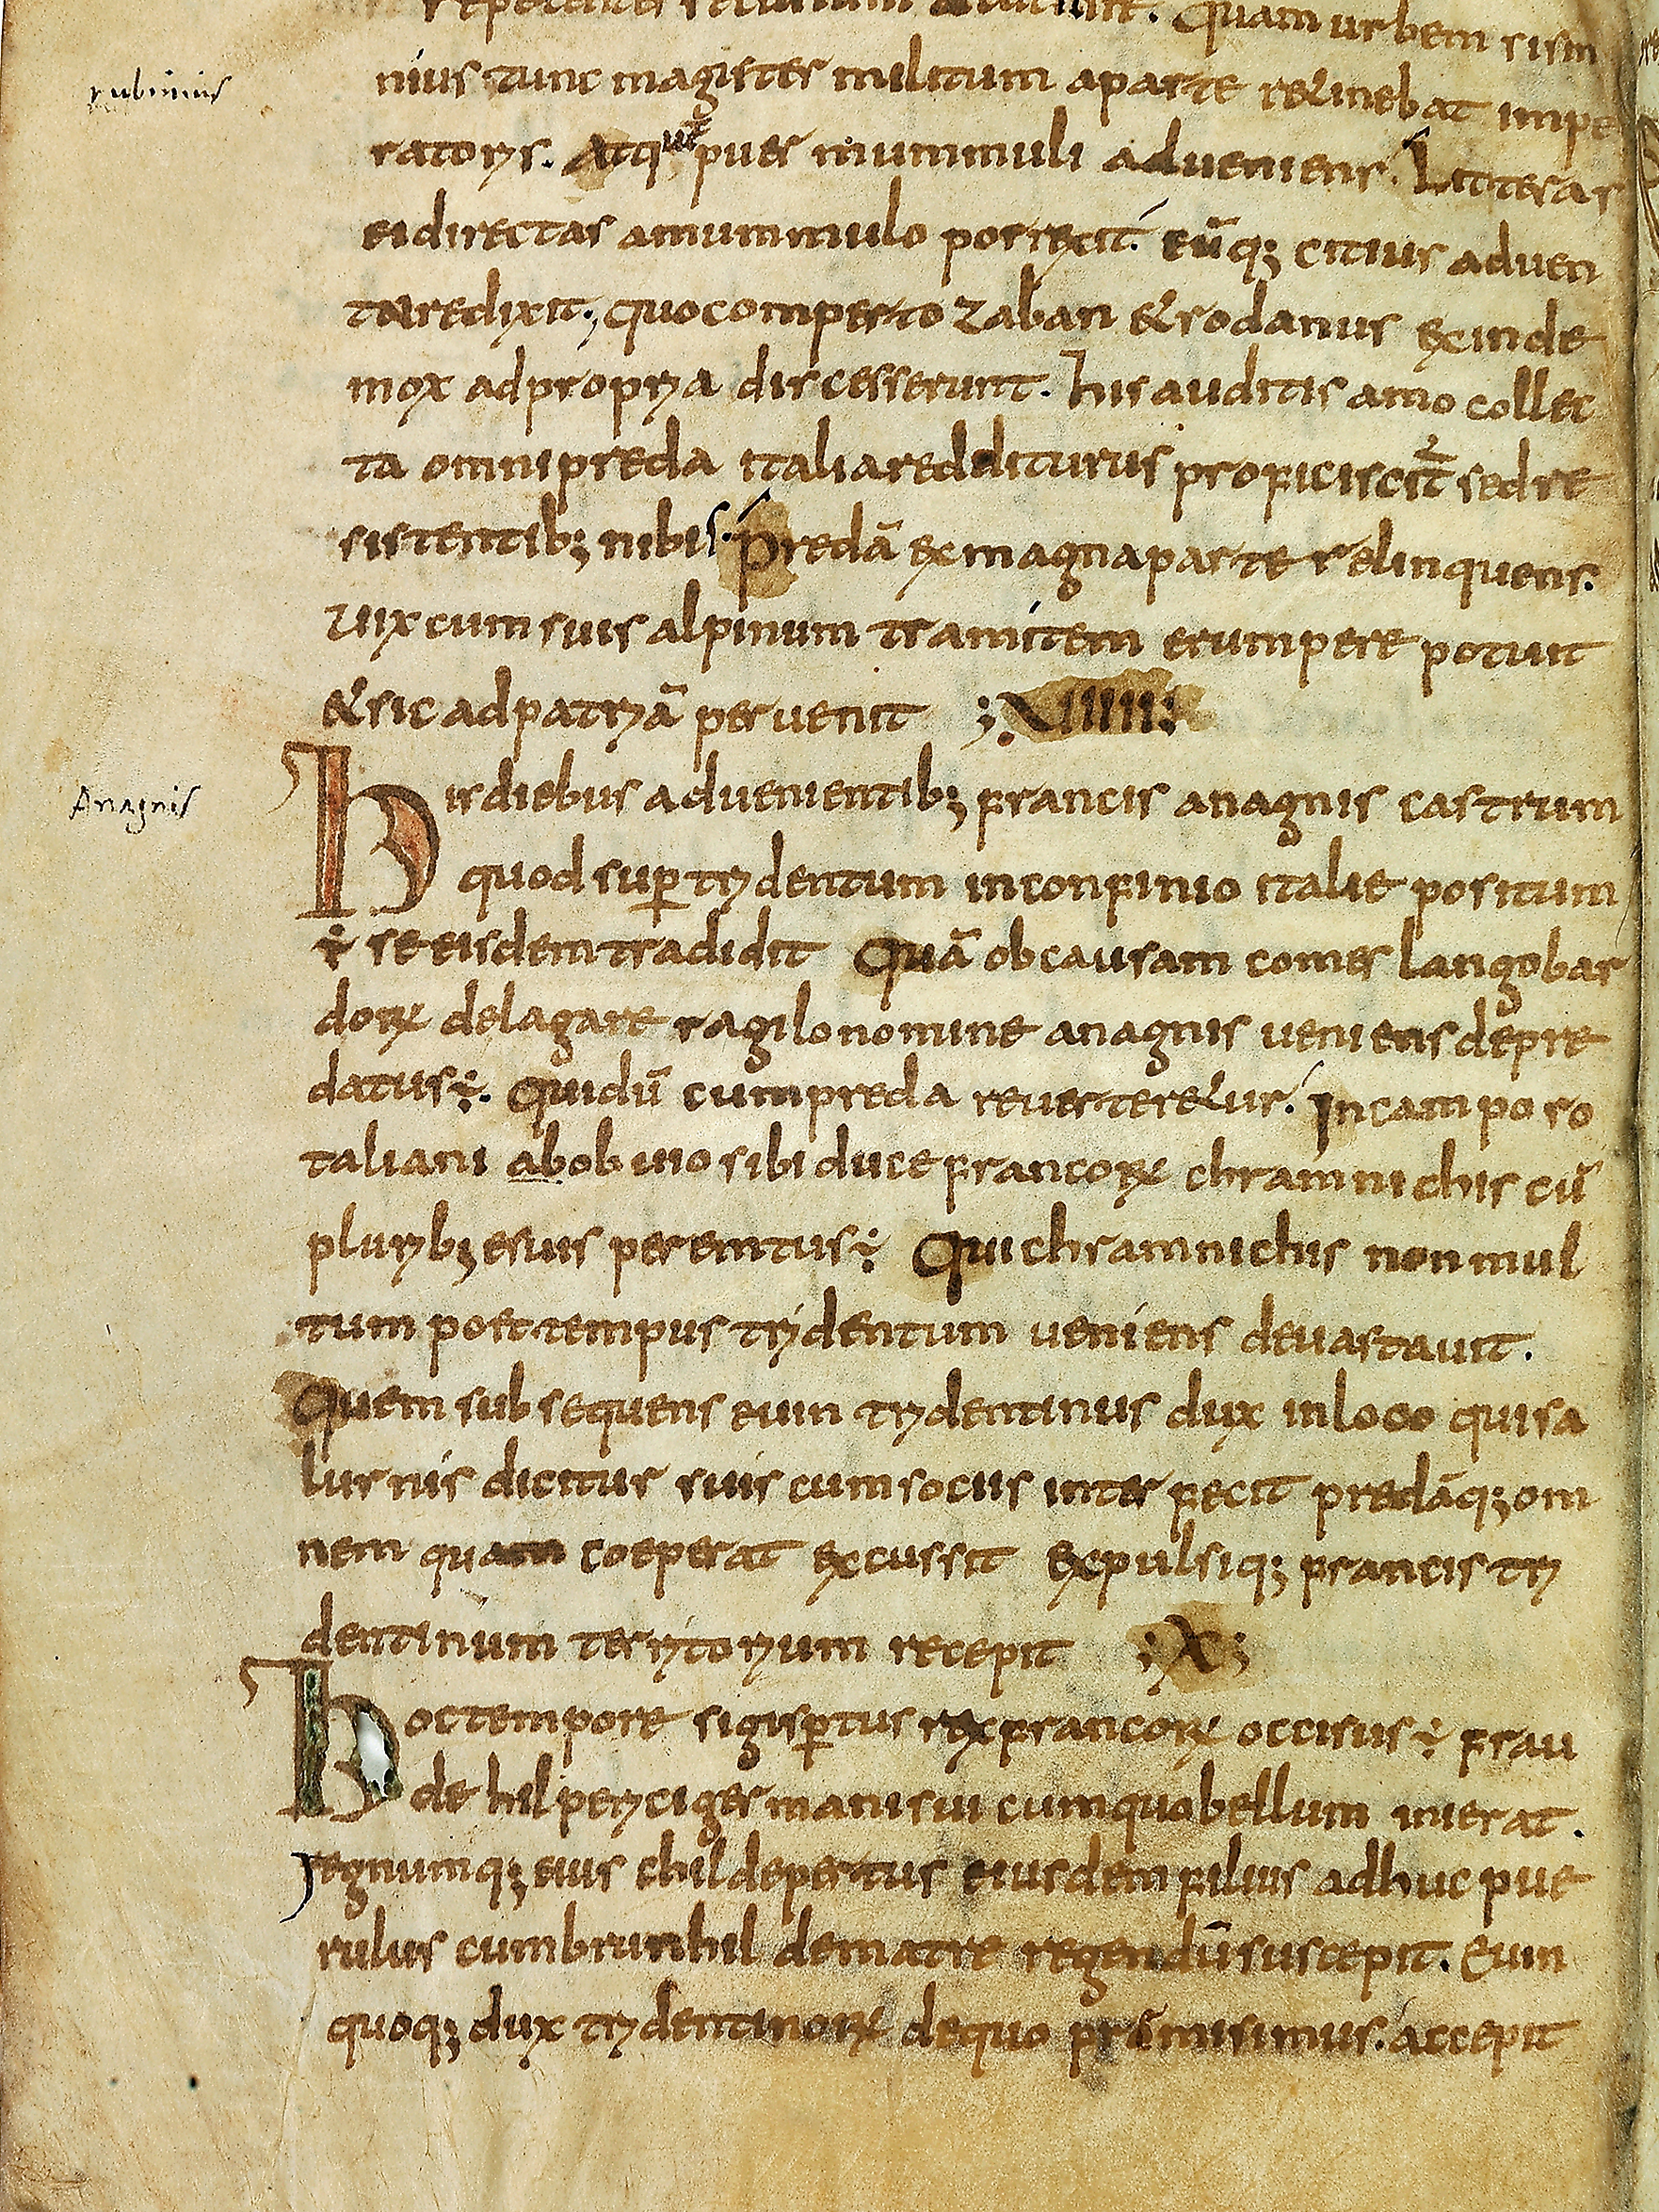 Quam urbem sism
rubinius
nius tunc magister militum aparte retinebat impe
ratorys. Atq ut puer mummuli adueniens. Litteras
ei directas amummulo porrexit. eūq; citius aduen
tare dixit., quo comperto zaban & rodanus exinde
mox ad proprya discesserunt. his auditis amo collec
ta omni preda italia reddditurus proficiscit̄ sed re
sistentib; nibis. Predā ex magna parte relinquens.
uix cum suis alpinum tramitem erumpere potuit
& sic ad patryā peruenit ;XIIIII;
Anagnis
His diebus aduenientib; francis anagnis castrum
quod sup̄ trydentum in confinio italie positum
÷ se eisdem tradidit Quā ob causam comes langobar
dorꝝ delagare ragilo nomine anagnis ueniens depre
datus ÷. Qui dū cum preda reuerteretur. In campo ro
taliani ab obuio sibi duce francorꝝ chramnichis cū
pluryb; e suis peremtus ÷ Qui chramnichis non mul
tum post tempus trydentum ueniens deuastauit.
Quem subsequens euin trydentinus dux in loco qui sa
lurnis dicitur suis cum sociis interfecit predāq; om
nem quam coeperat excussit expulsiq; francis try
dentinum terrytoryum recepit ;X;
Hoc tempore sigisp̄tus rex francorꝝ occisus ÷ frau
de hilperyci germani sui cum quo bellum inierat.
regnumq; eius childepertus eiusdem filius adhuc pue
rulus cum brunhilde matre regendū suscepit. Euin
quoq; dux trydentinorꝝ de quo prēmisimus. accepit